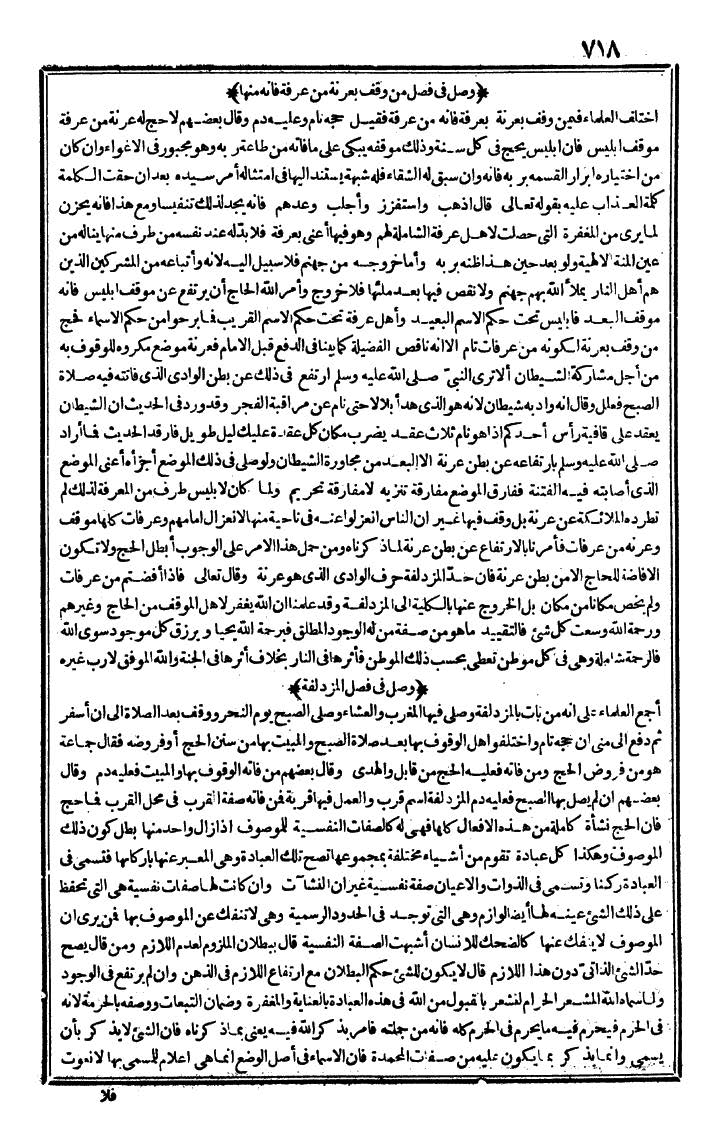 ٧١٨
﴿وصل فى فصل من وقف بعرنة من عرفة فانه منها﴾
اختلف العلماء فيمن وقف بعرنة بعرفة فانه من عرفة فقيل حجه تام وعليه دم وقال بعضهم لا حج له عرنة من عرفة
موقف ابليس فان ابليس يحج فى كل سنة وذلك موقفه يبكى على ما فاته من طاعة ربه وهو مجبور فى الاغواء وان كان
من اختياره ابرار القسمه بربه فانه وان سبق له الشقاء فله شبهة يستند اليها فى امتثاله أمر سيده بعد ان حقت الكلمة
كلمة العذاب عليه بقوله تعالى قال اذهب واستفزز وأجلب وعدهم فانه يجد لذلك تنفيسا ومع هذا فانه يحزن
لما يرى من المغفرة التى حصلت لاهل عرفة الشاملة لهم وهو فيها أعنى بعرفة فلا بد له عند نفسه من طرف منها يناله من
عين المنة الالهية ولو بعد حين هذا ظنه بربه وأما خروجه من جهنم فلا سبيل اليه لانه وأتباعه من المشركين الذين
هم أهل النار يملأ الله بهم جهنم ولا نقص فيها بعد ملئها فلا خروج وأمر الله الحاج أن يرتفع عن موقف ابليس فانه
موقف البعد فابليس تحت حكم الاسم البعيد وأهل عرفة تحت حكم الاسم القريب فما برحوا من حكم الاسماء فحج
من وقف بعرنة لكونه من عرفات تام الا انه ناقص الفضيلة كما بينا فى الدفع قبل الامام فعرنة موضع مكروه للوقوف به
من أجل مشاركة الشيطان ألا ترى النبى صلى الله عليه وسلم ارتفع فى ذلك عن بطن الوادى الذى فاتته فيه صلاة
الصبح فعلل وقال انه واد به شيطان لانه هو الذى هدأ بلالا حتى نام عن مراقبة الفجر وقد ورد فى الحديث ان الشيطان
يعقد على قافية رأس أحدكم اذا هو نام ثلاث عقد يضرب مكان كل عقدة عليك ليل طويل فارقد الحديث فما أراد
صلى الله عليه وسلم بارتفاعه عن بطن عرنة الا البعد من مجاورة الشيطان ولو صلى فى ذلك الموضع أجزأه أعنى الموضع
الذى أصابته فيه الفتنة ففارق الموضع مفارقة تنزيه لا مفارقة تحريم ولما كان لابليس طرف من المعرفة لذلك لم
تطرده الملائكة عن عرنة بل وقف فيها غير ان الناس انعزلوا عنه فى ناحية منها لانعزال امامهم وعرفات كلها موقف
وعرنه من عرفات فأمرنا بالارتفاع عن بطن عرنة لما ذكرناه ومن حمل هذا الامر على الوجوب أبطل الحج ولا تكون
الافاضة للحاج الا من بطن عرنة فان حد المزدلفة حرف الوادى الذى هو عرنة وقال تعالى فاذا أفضتم من عرفات
ولم يخص مكانا من مكان بل الخروج عنها بالكلية الى المزدلفة وقد علمنا ان الله يغفر لاهل الموقف من الحاج وغيرهم
ورحمة الله وسعت كل شئ فالتقييد ما هو من صفة من له الوجود المطلق فبرحمة الله يحيا ويرزق كل موجود سوى الله
فالرحمة شاملة وهى فى كل موطن تعطى بحسب ذلك الموطن فأثرها فى النار بخلاف أثرها فى الجنة والله الموفق لا رب غيره
﴿وصل فى فصل المزدلفة﴾
أجمع العلماء على انه من بات بالمزدلفة وصلى فيها المغرب والعشاء وصلى الصبح يوم النحر ووقف بعد الصلاة الى ان أسفر
ثم دفع الى منى ان حجه تام واختلفوا هل الوقوف بها بعد صلاة الصبح والمبيت بها من سنن الحج أو فروضه فقال جماعة
هو من فروض الحج ومن فاته فعليه الحج من قابل والهدى وقال بعضهم من فاته الوقوف بها والمبيت فعليه دم وقال
بعضهم ان لم يصل بها الصبح فعليه دم المزدلفة اسم قرب والعمل فيها قربة فمن فاته صفة القرب فى محل القرب فما حج
فان الحج نشأة كاملة من هذه الافعال كلها فهى له كالصفات النفسية للموصوف اذا زال واحد منها بطل كون ذلك
الموصوف وهكذا كل عبادة تقوم من أشياء مختلفة بمجموعها تصح تلك العبادة وهى المعبر عنها باركانها فتسمى فى
العبادة ركنا وتسمى فى الذوات والاعيان صفة نفسية غير ان النشآت وان كانت لها صفات نفسية هى التى تحفظ
على ذلك الشئ عينه لها أيضا لوازم وهى التى توجد فى الحدود الرسمية وهى لا تنفك عن الموصوف بها فمن يرى ان
الموصوف لا ينفك عنها كالضحك للانسان أشبهت الصفة النفسية قال ببطلان الملزوم لعدم اللازم ومن قال يصح
حد الشئ الذاتى دون هذا اللازم قال لا يكون للشئ حكم البطلان مع ارتفاع اللازم فى الذهن وان لم يرتفع فى الوجود
ولما سماه الله المشعر الحرام لنشعر بالقبول من الله فى هذه العبادة بالعناية والمغفرة وضمان التبعات ووصفه بالحرمة لانه
فى الحرم فيحرم فيه ما يحرم فى الحرم كله فانه من جملته فأمر بذكر الله فيه يعنى بما ذكرناه فان الشئ لا يذكر بأن
يسمى وانما يذكر بما يكون عليه من صفات المحمدة فان الاسماء فى أصل الوضع انما هى اعلام للمسمى بها لا نعوت
فلا